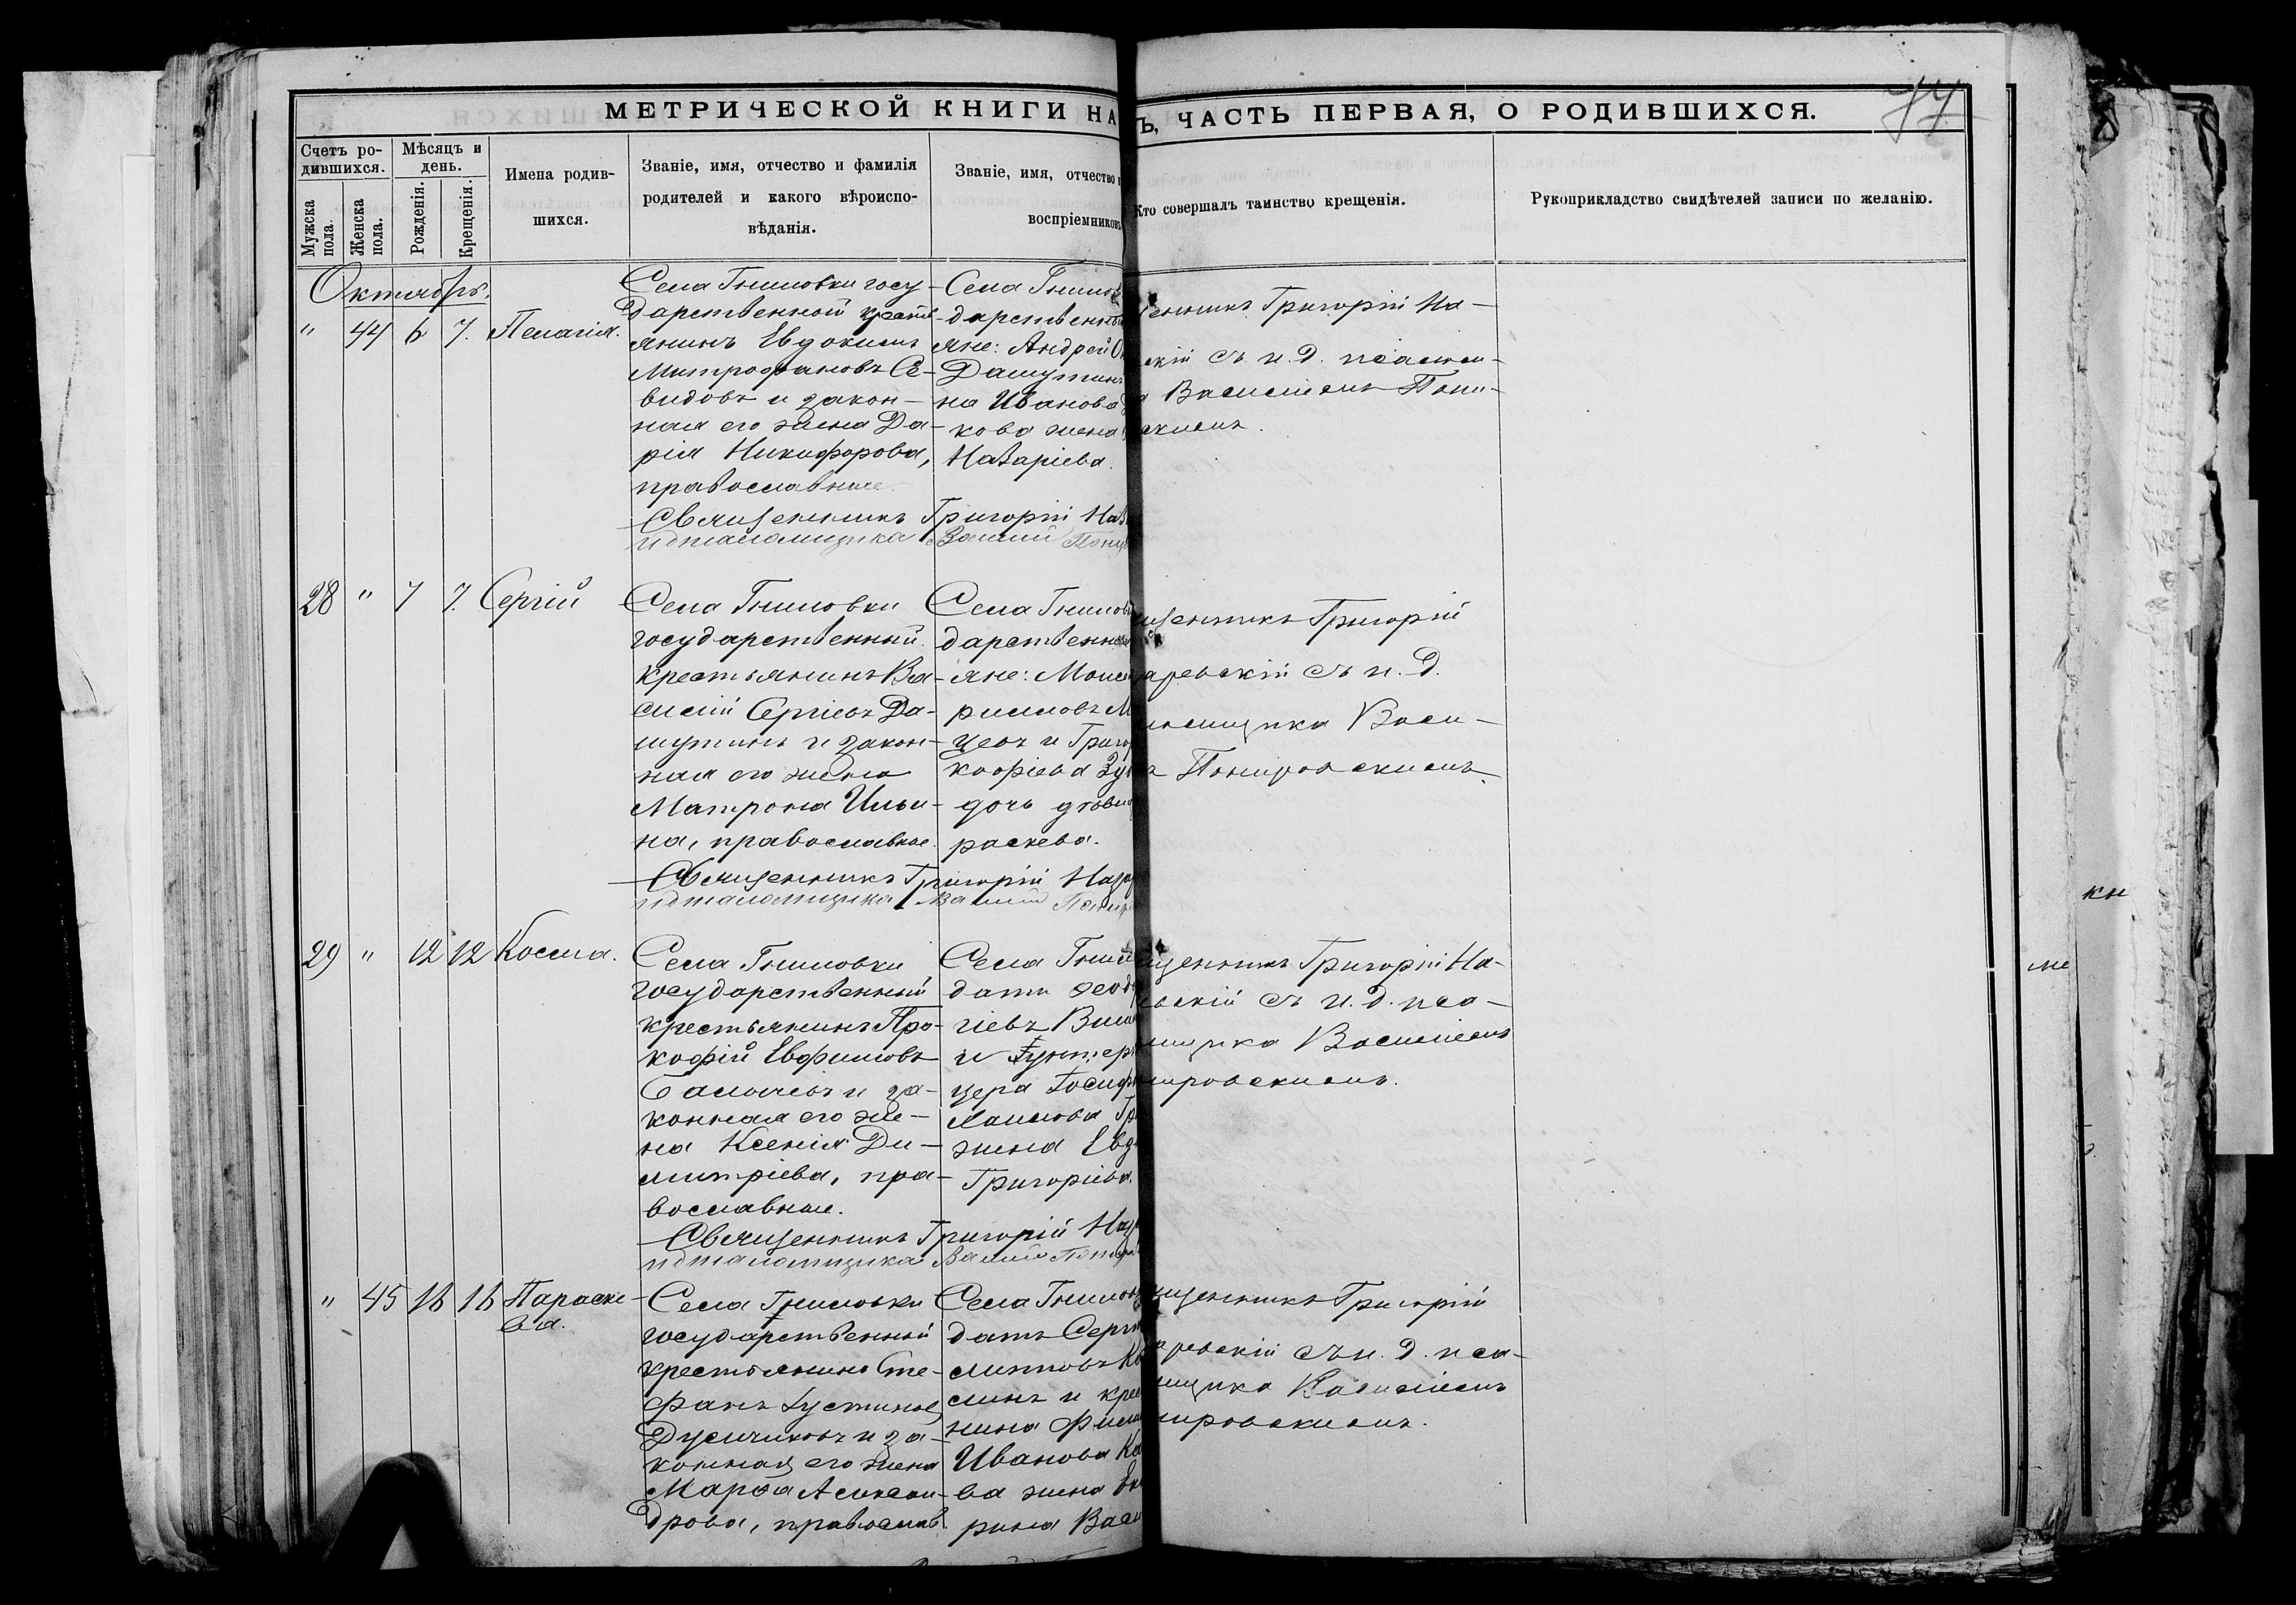 МЕТРИЧЕСКОЙ КНИГИ НА Ъ, ЧАСТЬ ПЕРВАЯ, О РОДИВШИХСЯ.
77
Счетъ ро-
дившихся.
Мужска пола.
Женска пола.
Мѣсяцъ и
день.
Рожденія.
Крещенія.
Имена родив-
шихся.
Званіе, имя, отчество и фамилія
родителей и какого вѣроиспо-
вѣданія.
Званіе, имя, отчество и
воспріемниковъ
Кто совершалъ таинство крещенія.
Рукоприкладство свидѣтелей записи по желанію.
Октябрь.
" 44 6 7. Пелагія.
Села Гниловки госу-
дарственной крестъ-
янинъ Евдокимъ
Митрофановъ Се-
видовъ и закон-
ная его жена Да-
рія Никифорова,
православные
Села Гнилов
дарственные
яне: Андрей
Дашутинъ
на Иванова
кова жена
Назаріева.
енникъ Григорій На-
скій съ и. д. псалом-
а Василіемъ Пони-
скимъ.
Священникъ Григорій Наз
псаломщика Василій Пони
28 " 7 7. Сергій
Села Гниловки
государственный
крестьянинъ Ва-
силій Сергіевъ Да-
шутинъ и закон-
ная его жена
Матрона Ильи-
на, православные.
Села Гнилов
дарственные
яне: Моисе
рилловъ М
цевъ и Григо
кофіева Зу
дочь дѣвиц
раскева.
щенникъ Григорій
аревскій съ и. д.
ломщика Васи-
ъ Понировскимъ.
Священникъ Григорій Наза
псаломщика Василій Понир
29 " 12 12 Косма.
Села Гниловки
государственный
крестьянинъ Про-
кофій Евфимовъ
и за-
конная его же-
на Ксенія Ди-
митріева, пра-
вославные.
Села Гнил
датъ Ѳеод
гіевъ
и Унтеръ
цера Іосиф
жена Евд
Григоріева.
щенникъ Григорій На-
евскій съ и. д. пса-
мщика Василіемъ
нировскимъ.
Священникъ Григорій Наз
псаломщика Василій Понир
" 45 16 16 Параске-
ва.
Села Гниловки
государственный
крестьянинъ Сте-
фанъ Іустиновъ
и за-
конная его жена
Марѳа Алексан-
дрова, православ.
Села Гнилов
датъ Серг
нина Фили
Иванова
ва жена Ека
рина Васи
щенникъ Григорій
аревскій съ и. д. пса-
мщика Василіемъ
нировскимъ.